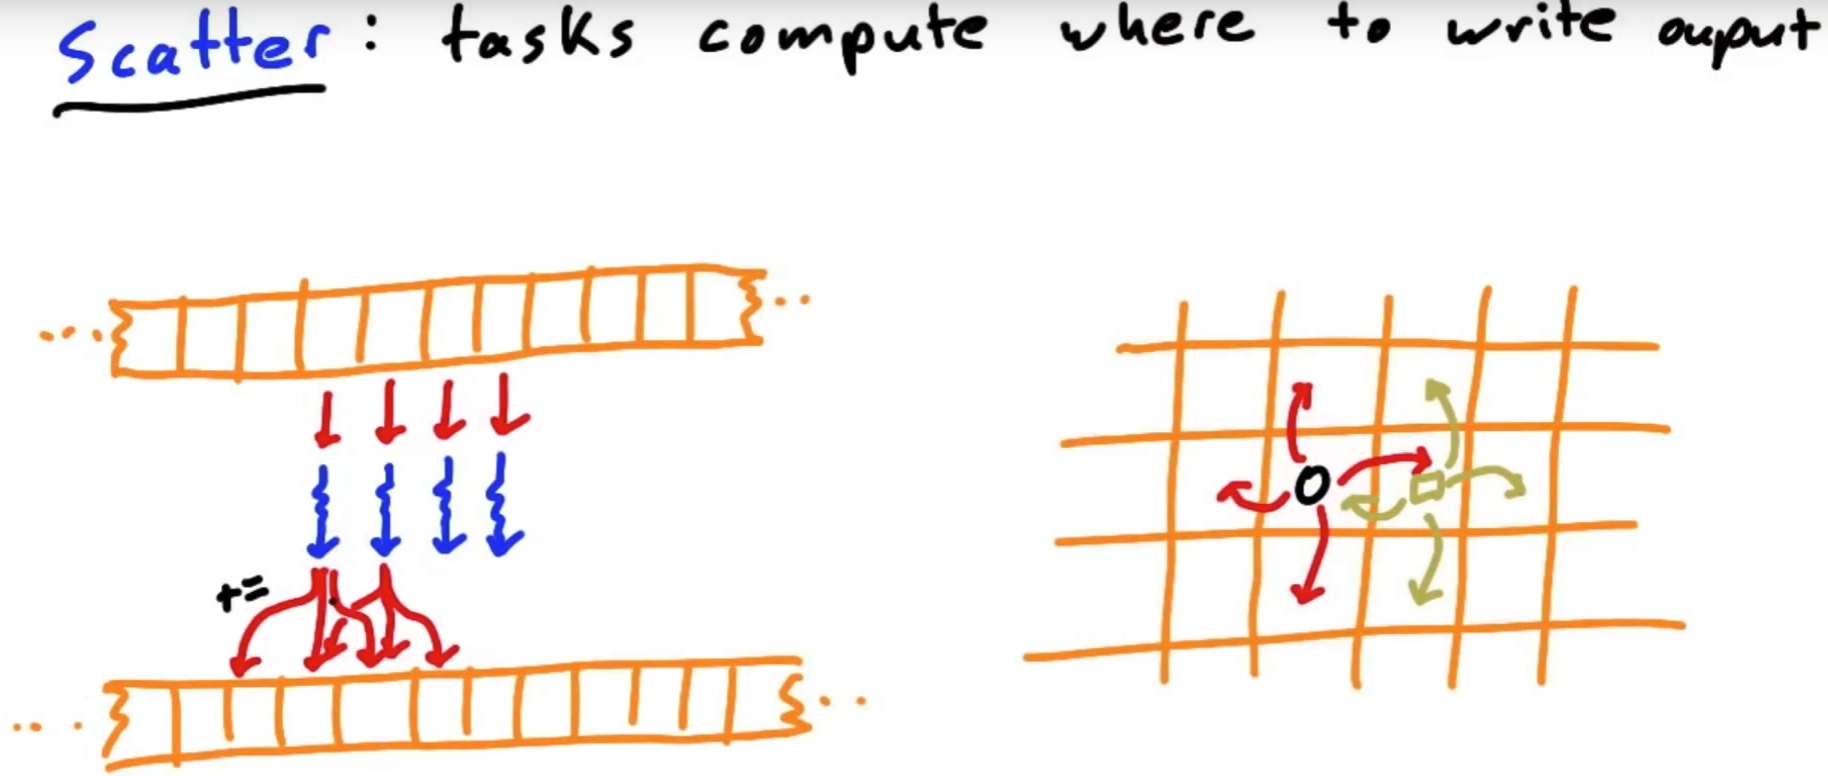 Scatter: tasks compute where to write ouput
+=